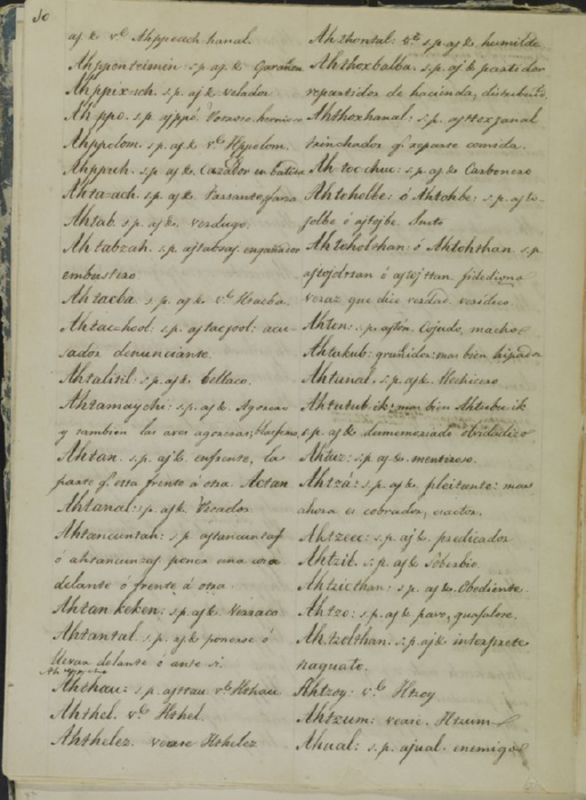 10
aj & vê Ahppeach hanal.
Ahppenteimin s.p. aj. &
Ahppix-ich. s.p. aj & velador
Ah ppo. s.p. ajppó.
Ahppolom. s.p. aj & vê Hppolom.
Ahppuh. s.p. aj &. Cazador en batida
Ahta-ach. s.p. aj &.
Ahtab. s.p. aj &. verdugo.
Ah tabzah. s.p. ajtabsaj. engañador
embustero
Ahtacba. s.p. aj &. vê Htacba.
Ahtac-hool: s.p. ajtacjool: acu-
sador denunciante.
Ahtalitil: s.p. aj &. bellaco.
Ahtamaychi: s.p. aj &. Agorero
y tambien las aves agoreras, blasfemo,
Ahtan. s.p. aj &. enfrente, la
parte q. esta frente á otra. Actan
Ahtanal: s.p. aj &.
Ahtancuntah: s.p. ajtancuntaj
ó ahtancunzaj. poner una cosa
delante ó frente á otra
Ahtan keken: s.p. aj &.
Ahtantal. s.p. aj & ponerse ó
llevar delante ó ante si.
Ahthau: s.p. ajttau vê Hthau
Ahthel. vê Hthel.
Ahthelez. vease Hthelez
Ahthontal: s.p. aj &. humilde
Ahthoxbalba. s.p. aj & partidor
repartidor de hacienda, distribuid.
Ahthoxhanal: s.p. ajttoxjanal
trinchador q. reparte comida.
Ah-toc chuc: s.p. aj &. Carbonero
Ahtoholbe: ó Ahtohbe: s.p. ajto-
jolbe ó ajtojbe. Justo
Ahtoholthan: ó Ahtohthan. s.p.
ajtojolttan ó ajtojttan. fidedigno
veraz que dice verdad. veridico.
Ahton: s.p. ajtón. Cojudo, macho
Ahtukub: gruñidor: mas bien hipador
Ahtunal. s.p. aj &. Hechicero
Ahtutub ik: mas bien Ahtubu ik
s.p. aj & desmemoriado olvidadizo
Ahtuz: s.p. aj &. mentiroso.
Ahtza: s.p. aj &. pleitante: mas
ahora es cobrador, exactor.
Ahtzeec: s.p. aj &. predicador
Ahtzil: s.p. aj &. sóberbio
Ahtzicthan: s.p. aj &. Obediente.
Ahtzo: s.p. aj & pavo, guajalote.
Ah.tzolthan. s.p. aj & interprete
naguato.
Ahtzoy: vê Htzoy
Ahtzum: vease. Htzum
Ahual: s.p. ajual. enemigo